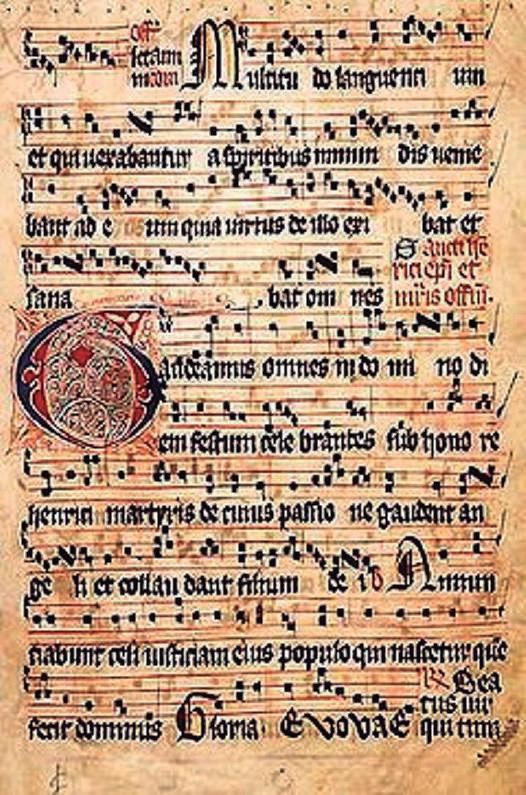 Off
Multitu do languenti um
et qui uexabantur a spiritibus inmun dis uenie
bant ad e um quia uirtus de illo exi bat et
sana bat om nes
Sancti he
rici epi et
mris offm.
Gaudeamus omnes in do mi no di
em festum cele brantes sub hono re
henrici martyris de cuius passio ne gaudent an
ge li et collau dant filium de i Annun
ciabunt celi iusticiam eius populo qui nascetur que
fecit dominus Gloria. EVOVAE
Bea
tus uir
qui tim